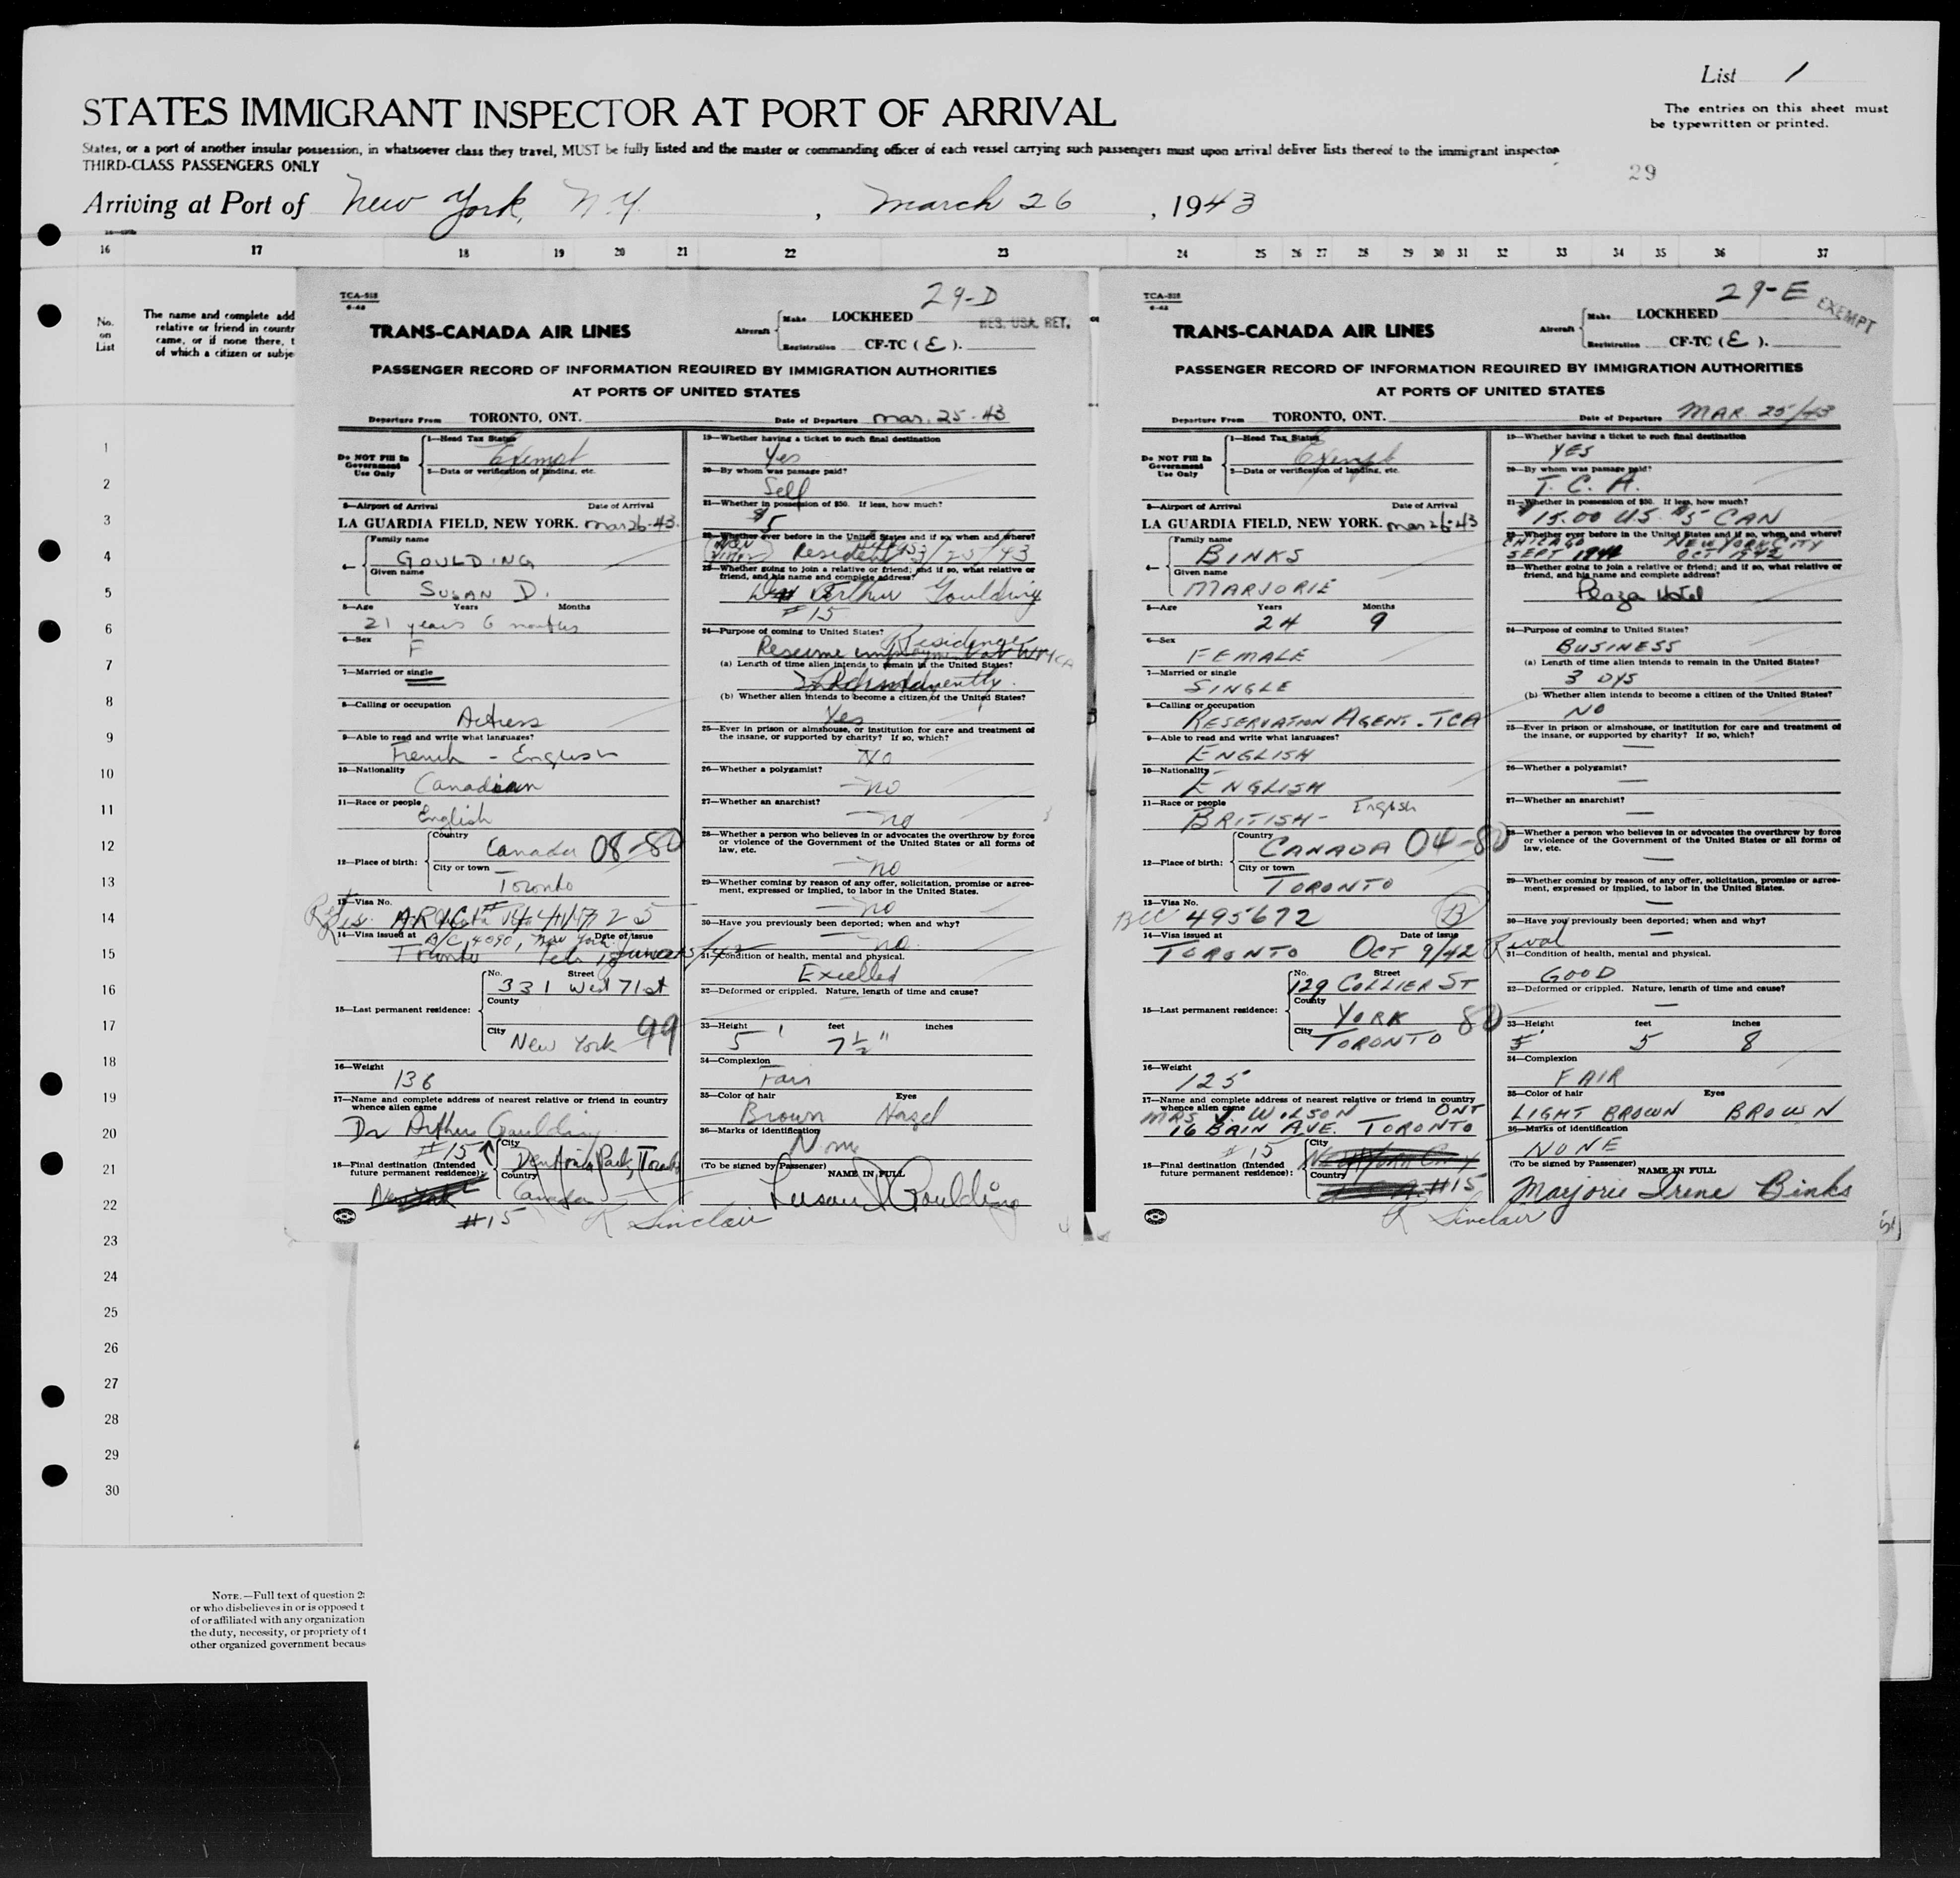 List 1
STATES IMMIGRANT INSPECTOR AT PORT OF ARRIVAL
The entries on this sheet must
be typewritten or printed.
States, or a port of another insular possession, in whatsoever class they travel, MUST be fully listed and the master or commanding officer of each vessel carrying such passengers must upon arrival deliver lists thereof to the immigrant inspector
THIRD-CLASS PASSENGERS ONLY
29
Arriving at Port of New York, N.Y. , March 26 , 1943
16 17 18 19 20 21 22 23 24 25 26 27 28 29 30 31 32 33 34 35 36 37
No.
on
List
The name and complete add
relative or friend in countr
came, or if none there, t
of which a citizen or subje
1
2
3
4
5
6
7
8
9
10
11
12
13
14
15
16
17
18
19
20
21
22
23
24
25
26
27
28
29
30
NOTE.—Full text of question 2
or who disbelieves in or is opposed t
of or affiliated with any organization
the duty, necessity, or propriety of t
other organized government becaus
TCA-518
29-D
TRANS-CANADA AIR LINES
Aircraft Make LOCKHEED
RES. USA. RET.
Registration CF-TC (E).
PASSENGER RECORD OF INFORMATION REQUIRED BY IMMIGRATION AUTHORITIES
AT PORTS OF UNITED STATES
Departure From TORONTO, ONT. Date of Departure Mar. 25-43
Do NOT Fill In
Government
Use Only
1—Head Tax Status
Exempt
2—Data or verification of landing, etc.
3—Airport of Arrival Date of Arrival
LA GUARDIA FIELD, NEW YORK. Mar 26-43.
4— Family name
GOULDING
Given name
SUSAN D.
5—Age Years Months
21 years 6 months
6—Sex
F
7—Married or single
8—Calling or occupation
Actress
9—Able to read and write what languages?
French - English
10—Nationality
Canadian
11—Race or people
English
12—Place of birth: Country
Canada 08-80
City or town
Toronto
13—Visa No.
14—Visa issued at Date of issue
A/C, 4090, New York
Toronto
15—Last permanent residence: No. Street
331 West 71st
County
City
New York 99
16—Weight
136
17—Name and complete address of nearest relative or friend in country
whence alien came
Dr Arthur Goulding
#15
18—Final destination (Intended
future permanent residence):
City
Country
Canada
New York
#15
19—Whether having a ticket to such final destination
Yes
20—By whom was passage paid?
Self
21—Whether in possession of $50. If less, how much?
$5
22—Whether ever before in the United States and if so, when and where?
Resident
23—Whether going to join a relative or friend; and if so, what relative or
friend, and his name and complete address?
Arthur Goulding
#15
24—Purpose of coming to United States?
Residence
Resume employment
(a) Length of time alien intends to remain in the United States?
Permanently.
(b) Whether alien intends to become a citizen of the United States?
Yes
25—Ever in prison or almshouse, or institution for care and treatment of
the insane, or supported by charity? If so, which?
No
26—Whether a polygamist?
no
27—Whether an anarchist?
no
28—Whether a person who believes in or advocates the overthrow by force
or violence of the Government of the United States or all forms of
law, etc.
no
29—Whether coming by reason of any offer, solicitation, promise or agree-
ment, expressed or implied, to labor in the United States.
no
30—Have you previously been deported; when and why?
no
31—Condition of health, mental and physical.
32—Deformed or crippled. Nature, length of time and cause?
33—Height feet inches
5' 7½"
34—Complexion
Fair
35—Color of hair Eyes
Brown Hazel
36—Marks of identification
None
(To be signed by Passenger) NAME IN FULL
Susan D Goulding
R Sinclair
TCA-518
29-E
EXEMPT
TRANS-CANADA AIR LINES
Aircraft Make LOCKHEED
Registration CF-TC (E).
PASSENGER RECORD OF INFORMATION REQUIRED BY IMMIGRATION AUTHORITIES
AT PORTS OF UNITED STATES
Departure From TORONTO, ONT. Date of Departure MAR. 25/43
Do NOT Fill In
Government
Use Only
1—Head Tax Status
Exempt
2—Data or verification of landing, etc.
3—Airport of Arrival Date of Arrival
LA GUARDIA FIELD, NEW YORK. Mar 26-43
4— Family name
BINKS
Given name
MARJORIE
5—Age Years Months
24 9
6—Sex
FEMALE
7—Married or single
SINGLE
8—Calling or occupation
RESERVATION AGENT. TCA
9—Able to read and write what languages?
ENGLISH
10—Nationality
ENGLISH
11—Race or people
BRITISH - English
12—Place of birth: Country
CANADA 04-80
City or town
TORONTO
13—Visa No.
BCC 495672 B
14—Visa issued at Date of issue
TORONTO OCT 9/42
15—Last permanent residence: No. Street
129 COLLIER ST
County
YORK 80
City
TORONTO
16—Weight
125
17—Name and complete address of nearest relative or friend in country
whence alien came
MRS V. WILSON ONT
16 BAIN AVE. TORONTO
18—Final destination (Intended
future permanent residence):
#15
City
NEW YORK CITY
Country
#15
19—Whether having a ticket to such final destination
YES
20—By whom was passage paid?
T. C. A.
21—Whether in possession of $50. If less, how much?
$15.00 U.S. $5 CAN
22—Whether ever before in the United States and if so, when and where?
CHICAGO NEW YORK CITY
SEPT 1942 OCT 1942
23—Whether going to join a relative or friend; and if so, what relative or
friend, and his name and complete address?
Plaza Hotel
24—Purpose of coming to United States?
BUSINESS
(a) Length of time alien intends to remain in the United States?
3 DYS
(b) Whether alien intends to become a citizen of the United States?
NO
25—Ever in prison or almshouse, or institution for care and treatment of
the insane, or supported by charity? If so, which?
—
26—Whether a polygamist?
—
27—Whether an anarchist?
—
28—Whether a person who believes in or advocates the overthrow by force
or violence of the Government of the United States or all forms of
law, etc.
—
29—Whether coming by reason of any offer, solicitation, promise or agree-
ment, expressed or implied, to labor in the United States.
30—Have you previously been deported; when and why?
—
31—Condition of health, mental and physical.
GOOD
32—Deformed or crippled. Nature, length of time and cause?
—
33—Height feet inches
5 8
34—Complexion
FAIR
35—Color of hair Eyes
LIGHT BROWN BROWN
36—Marks of identification
NONE
(To be signed by Passenger) NAME IN FULL
Marjorie Irene Binks
R Sinclair